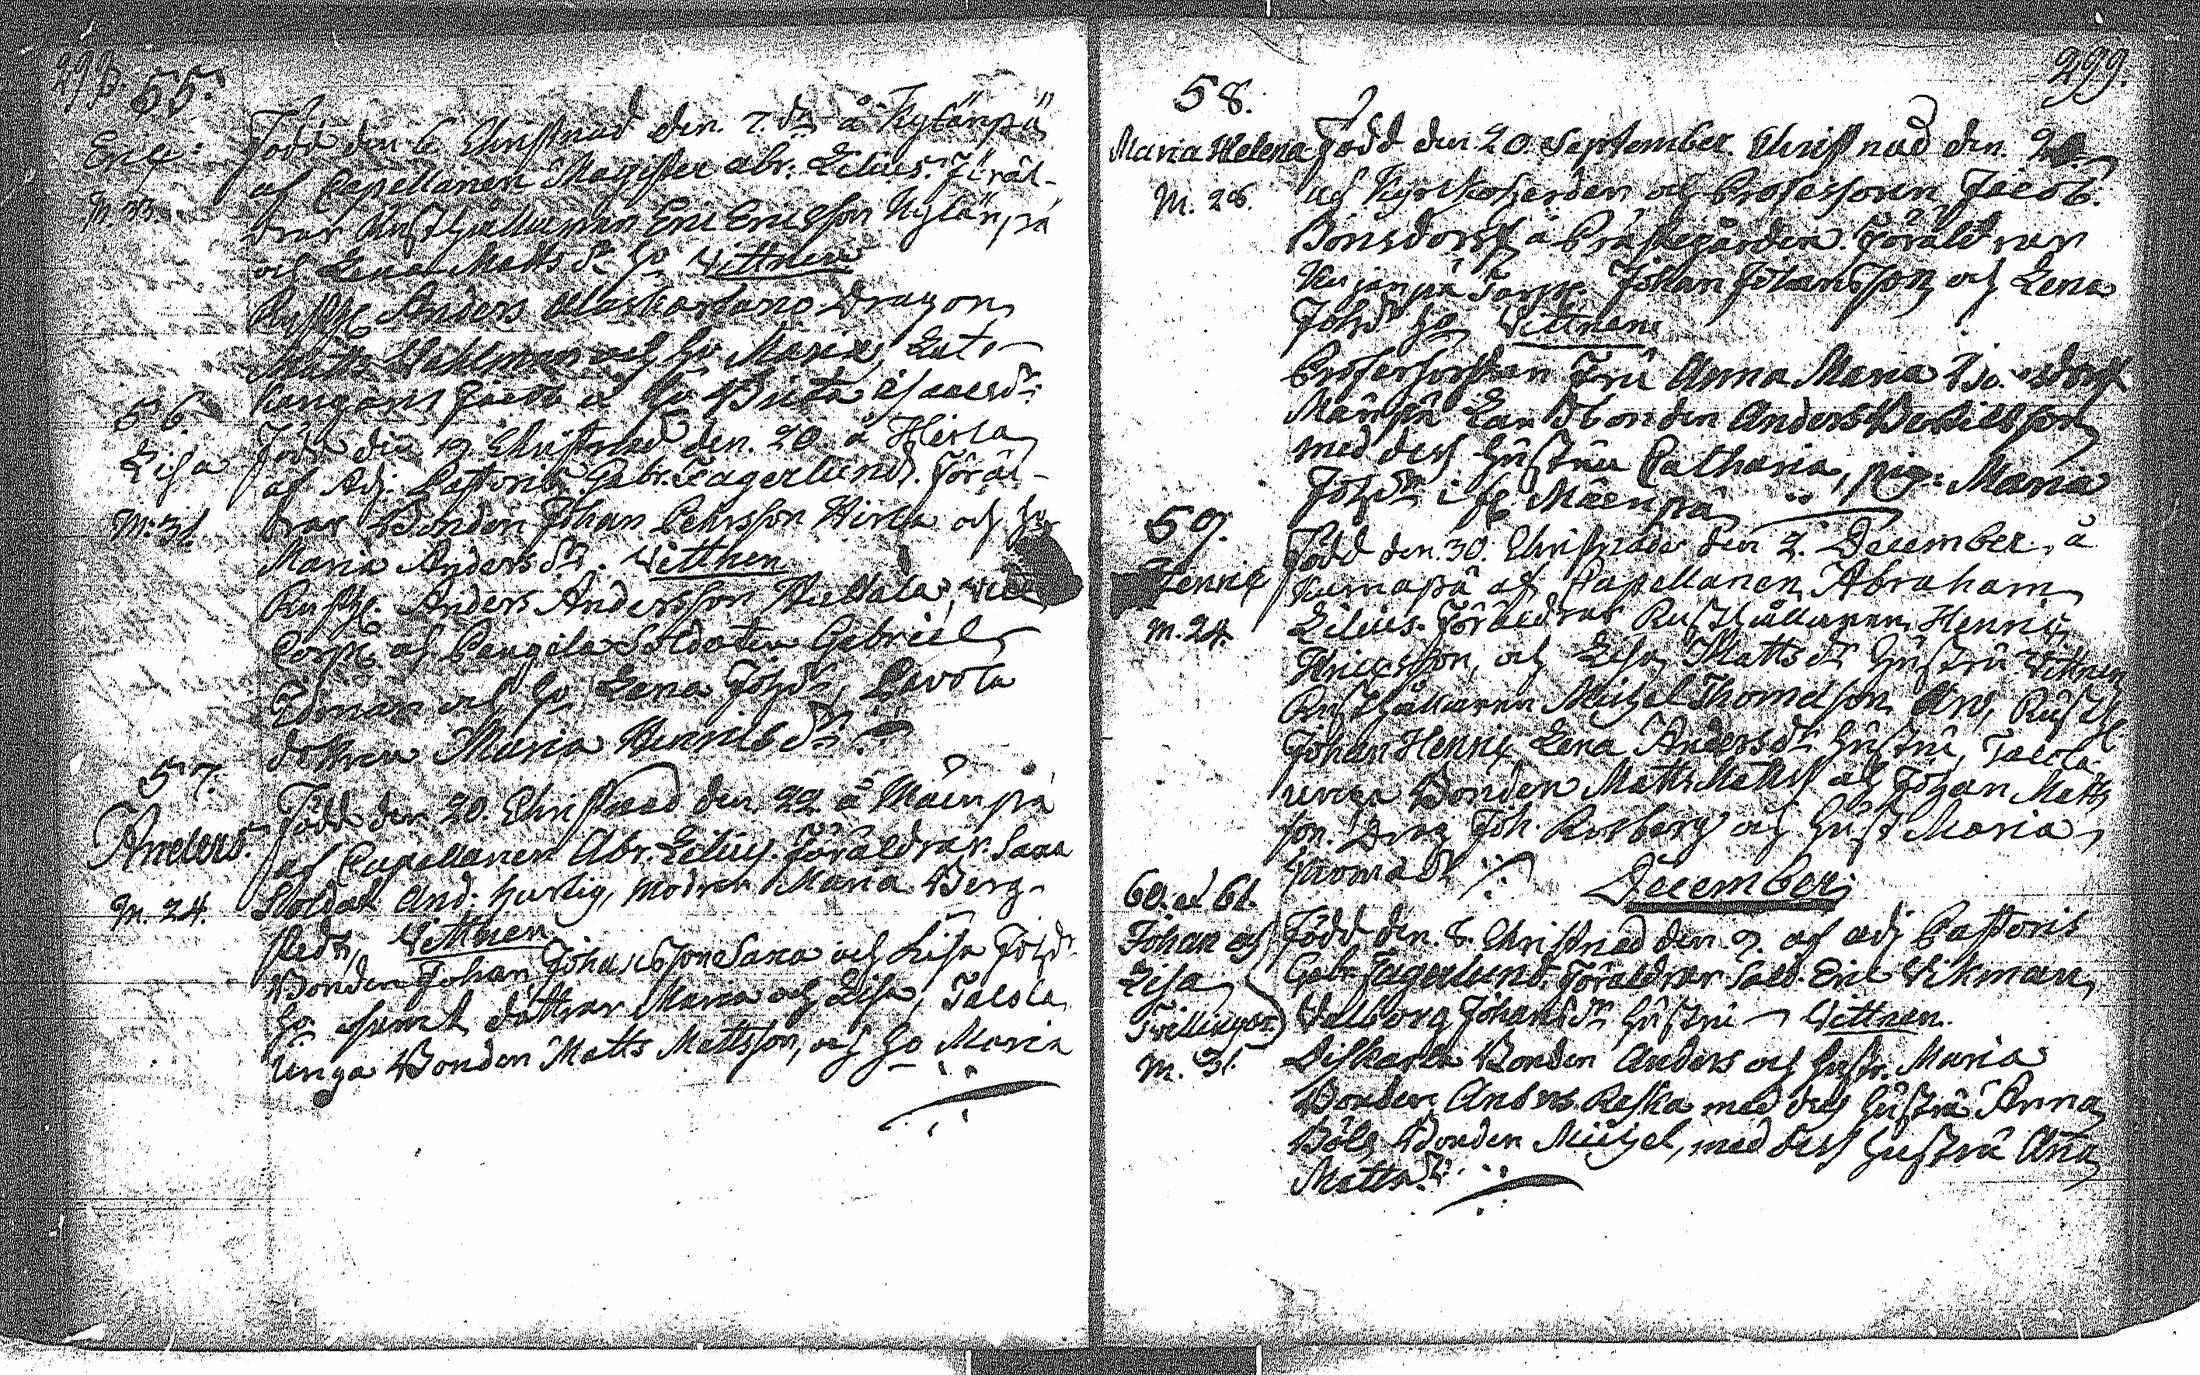 298.
55.
Eric:
M. 33.
Född den 6. Christnad den. 7. ds å Kylänpä
af Capellanen Magister Abr: Lilius. Föräl-
drar Rusthållaren Eric Ericsson Kylänpä
och Lena Matts dr ho Vittnen
Rusth: Anders Uuskartano Dragon
Matts Dahlman och ho Maria,
och ho Brita Isaacsdr:
56.
Lisa
M: 31.
Född den 19. Christnad den. 20. å Hirla
af Adj: Pastoris Gabr: Fagerlund. Föräl-
drar Bonden Johan Pehrsson Hirla och ho
Maria Andersdr. Vittnen
Rusth. Anders Andersson
Corp. af Soldaten Gabriel
Edman och ho Lena Johsdr,
Maria Henricsdr
57.
Anders.
M. 24.
Född den 20. Christnad den. 22 å Mäenpä
af Capellanen Abr. Lilius. Föräldrar. Saxa
Soldat And: Hurtig, modren Maria Berg-
stedt, Vittnen
Bonden Johan Johansson Saxa och Lisa Johsdr
ho samt döttrar Maria och Lisa, Talola
unga Bonden Matts Mattsson, och ho Maria
299.
58.
Maria Helena
M. 28.
Född den 20. September Christnad den.
af Kyrkoherden och Professoren Jacob.
Bonsdorff å Prästegården. Föräldrar
Torp. Johan Johansson och Lena
Johsdr ho Vittnen
Professorskan Fru Anna Maria Bonsdorff
Mäenpä Landbonden Anders
med dess hustru Catharia, pig: Maria
Johsdr i fr Mäenpä
59.
Henric
M. 24.
Född den. 30. Christnades den 2. December. å
af Capellanen Abraham
Lilius. Föräldrar Rusthållaren Henric
Henricsson, och Lisa Mattsdr hustru Vittnen
Rusthållaren Michel Thomasson Arv, Rusth
Johan Henric, Lena Andersdr hustru, Talola
unga Bonden Matts Mattss och Johan Matts
son. Drag Joh. Rosberg och hust Maria
Thomasdr
December.
60. et 61.
Johan och
Lisa
Tvillingar
M. 31.
Född den. 8. Christnad den. 9. af adj Pastoris
Gabr Fagerlund. Föräldrar Sold. Eric Vikman,
Valborg Johansdr hustru Vittnen.
Bonden Anders och hustr: Maria
Bonden Anders Reska med dess hustru Anna,
Böle Bonden Michel, med dess hustru Ana
Mattsdr.